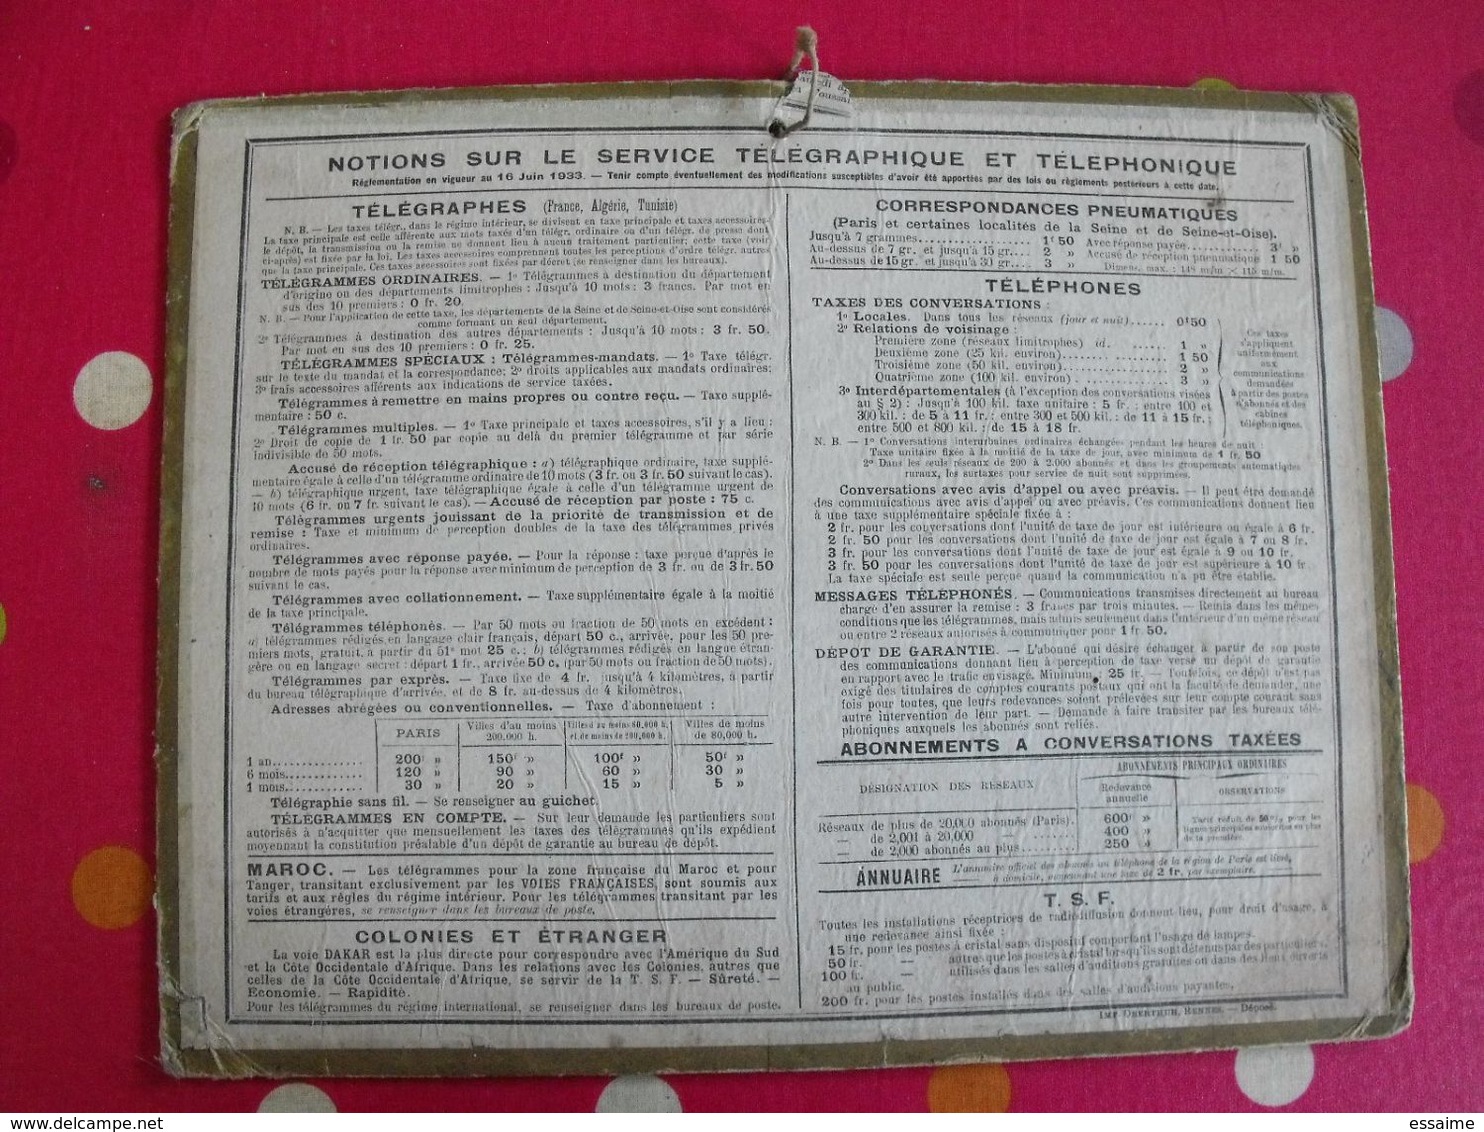 NOTIONS SUR LE SERVICE TÉLÉGRAPHIQUE ET TÉLÉPHONIQUE
Réglementation en vigueur au 16 Juin 1933. — Tenir compte éventuellement des modifications susceptibles d'avoir été apportées par des lois ou règlements postérieurs à cette date.
TÉLÉGRAPHES (France, Algérie, Tunisie)
N. B. — Les taxes télégr., dans le régime intérieur, se divisent en taxe principale et taxes accessoires.
La taxe principale est celle afférente aux mots taxés d'un télégr. ordinaire ou d'un télégr. de presse dont
le dépôt, la transmission ou la remise ne donnent lieu à aucun traitement particulier; cette taxe (voir
ci-après) est fixée par la loi. Les taxes accessoires comprennent toutes les perceptions d'ordre télégr. autres
que la taxe principale. Ces taxes accessoires sont fixées par décret (se renseigner dans les bureaux).
TÉLÉGRAMMES ORDINAIRES. — 1º Télégrammes à destination du département
d'origine ou des départements limitrophes : Jusqu'à 10 mots : 3 francs. Par mot en
sus des 10 premiers : 0 fr. 20.
N. B. — Pour l'application de cette taxe, les départements de la Seine et de Seine-et-Oise sont considérés
comme formant un seul département.
2º Télégrammes à destination des autres départements : Jusqu'à 10 mots : 3 fr. 50.
Par mot en sus des 10 premiers : 0 fr. 25.
TÉLÉGRAMMES SPÉCIAUX : Télégrammes-mandats. — 1º Taxe télégr.
sur le texte du mandat et la correspondance; 2º droits applicables aux mandats ordinaires;
3º frais accessoires afférents aux indications de service taxées.
Télégrammes à remettre en mains propres ou contre reçu. — Taxe supplé-
mentaire : 50 c.
Télégrammes multiples. — 1º Taxe principale et taxes accessoires, s'il y a lieu;
2º Droit de copie de 1 fr. 50 par copie au delà du premier télégramme et par série
indivisible de 50 mots.
Accusé de réception télégraphique : a) télégraphique ordinaire, taxe supplé-
mentaire égale à celle d'un télégramme ordinaire de 10 mots (3 fr. ou 3 fr. 50 suivant le cas).
— b) télégraphique urgent, taxe télégraphique égale à celle d'un télégramme urgent de
10 mots (6 fr. ou 7 fr. suivant le cas). — Accusé de réception par poste : 75 c.
Télégrammes urgents jouissant de la priorité de transmission et de
remise : Taxe et minimum de perception doubles de la taxe des télégrammes privés
ordinaires.
Télégrammes avec réponse payée. — Pour la réponse : taxe perçue d'après le
nombre de mots payés pour la réponse avec minimum de perception de 3 fr. ou de 3 fr. 50
suivant le cas.
Télégrammes avec collationnement. — Taxe supplémentaire égale à la moitié
de la taxe principale.
Télégrammes téléphonés. — Par 50 mots ou fraction de 50 mots en excédent :
a) télégrammes rédigés en langage clair français, départ 50 c., arrivée, pour les 50 pre-
miers mots, gratuit, à partir du 51e mot 25 c.; b) télégrammes rédigés en langue étran-
gère ou en langage secret : départ 1 fr., arrivée 50 c. (par 50 mots ou fraction de 50 mots).
Télégrammes par exprès. — Taxe fixe de 4 fr. jusqu'à 4 kilomètres, à partir
du bureau télégraphique d'arrivée, et de 8 fr. au-dessus de 4 kilomètres.
Adresses abrégées ou conventionnelles. — Taxe d'abonnement :
PARIS Villes d'au moins 200.000 h. Villes d'au moins 80,000 h. et de moins de 200,000 h. Villes de moins de 80,000 h.
1 an 200f » 150f » 100f » 50f »
6 mois 120 » 90 » 60 » 30 »
1 mois 30 » 20 » 15 » 5 »
Télégraphie sans fil. — Se renseigner au guichet.
TÉLÉGRAMMES EN COMPTE. — Sur leur demande les particuliers sont
autorisés à n'acquitter que mensuellement les taxes des télégrammes qu'ils expédient
moyennant la constitution préalable d'un dépôt de garantie au bureau de dépôt.
MAROC. — Les télégrammes pour la zone française du Maroc et pour
Tanger, transitant exclusivement par les VOIES FRANÇAISES, sont soumis aux
tarifs et aux règles du régime intérieur. Pour les télégrammes transitant par les
voies étrangères, se renseigner dans les bureaux de poste.
COLONIES ET ÉTRANGER
La voie DAKAR est la plus directe pour correspondre avec l'Amérique du Sud
et la Côte Occidentale d'Afrique. Dans les relations avec les Colonies, autres que
celles de la Côte Occidentale d'Afrique, se servir de la T. S. F. — Sûreté. —
Economie. — Rapidité.
Pour les télégrammes du régime international, se renseigner dans les bureaux de poste.
CORRESPONDANCES PNEUMATIQUES
(Paris et certaines localités de la Seine et de Seine-et-Oise).
Jusqu'à 7 grammes 1f 50 Avec réponse payée 3f »
Au-dessus de 7 gr. et jusqu'à 15 gr. 2 » Accusé de réception pneumatique 1 50
Au-dessus de 15 gr. et jusqu'à 30 gr. 3 » Dimens. max. : 148 m/m × 115 m/m.
TÉLÉPHONES
TAXES DES CONVERSATIONS :
1º Locales. Dans tous les réseaux (jour et nuit) 0f50
2º Relations de voisinage :
Première zone (réseaux limitrophes) id. 1 »
Deuxième zone (25 kil. environ) 1 50
Troisième zone (50 kil. environ) 2 »
Quatrième zone (100 kil. environ) 3 »
Ces taxes
s'appliquent
uniformément
aux
communications
demandées
à partir des postes
d'abonnés et des
cabines
téléphoniques.
3º Interdépartementales (à l'exception des conversations visées
au § 2) : Jusqu'à 100 kil. taxe unitaire : 5 fr.; entre 100 et
300 kil. : de 5 à 11 fr.; entre 300 et 500 kil. : de 11 à 15 fr.;
entre 500 et 800 kil. : de 15 à 18 fr.
N. B. — 1º Conversations interurbaines ordinaires échangées pendant les heures de nuit :
Taxe unitaire fixée à la moitié de la taxe de jour, avec minimum de 1 fr. 50
2º Dans les seuls réseaux de 200 à 2.000 abonnés et dans les groupements automatiques
ruraux, les surtaxes pour service de nuit sont supprimées.
Conversations avec avis d'appel ou avec préavis. — Il peut être demandé
des communications avec avis d'appel ou avec préavis. Ces communications donnent lieu
à une taxe supplémentaire spéciale fixée à :
2 fr. pour les conversations dont l'unité de taxe de jour est inférieure ou égale à 6 fr.
2 fr. 50 pour les conversations dont l'unité de taxe de jour est égale à 7 ou 8 fr.
3 fr. pour les conversations dont l'unité de taxe de jour est égale à 9 ou 10 fr.
3 fr. 50 pour les conversations dont l'unité de taxe de jour est supérieure à 10 fr.
La taxe spéciale est seule perçue quand la communication n'a pu être établie.
MESSAGES TÉLÉPHONÉS. — Communications transmises directement au bureau
chargé d'en assurer la remise : 3 francs par trois minutes. — Remis dans les mêmes
conditions que les télégrammes, mais admis seulement dans l'intérieur d'un même réseau
ou entre 2 réseaux autorisés à communiquer pour 1 fr. 50.
DÉPOT DE GARANTIE. — L'abonné qui désire échanger à partir de son poste
des communications donnant lieu à perception de taxe verse un dépôt de garantie
en rapport avec le trafic envisagé. Minimum, 25 fr. — Toutefois, ce dépôt n'est pas
exigé des titulaires de comptes courants postaux qui ont la faculté de demander, une
fois pour toutes, que leurs redevances soient prélevées sur leur compte courant sans
autre intervention de leur part. — Demande à faire transiter par les bureaux télé-
phoniques auxquels les abonnés sont reliés.
ABONNEMENTS A CONVERSATIONS TAXÉES
DÉSIGNATION DES RÉSEAUX
ABONNEMENTS PRINCIPAUX ORDINAIRES
Redevance annuelle OBSERVATIONS
Réseaux de plus de 20,000 abonnés (Paris). 600f »
— de 2,001 à 20,000 — 400 »
— de 2,000 abonnés au plus 250 »
Tarif réduit de 50 %, pour les
lignes principales souscrites en plus
de la première.
ANNUAIRE L'annuaire officiel des abonnés au téléphone de la région de Paris est livré,
à domicile, moyennant une taxe de 2 fr. par exemplaire.
T. S. F.
Toutes les installations réceptrices de radiodiffusion donnent lieu, pour droit d'usage, à
une redevance ainsi fixée :
15 fr. pour les postes à cristal sans dispositif comportant l'usage de lampes.
50 fr. — autres que les postes à cristal lorsqu'ils sont détenus par des particuliers.
100 fr. — utilisés dans les salles d'auditions gratuites ou dans des lieux ouverts
au public.
200 fr. pour les postes installés dans des salles d'auditions payantes.
IMP. OBERTHUR, RENNES. — Déposé.
delcampe.net
essaime